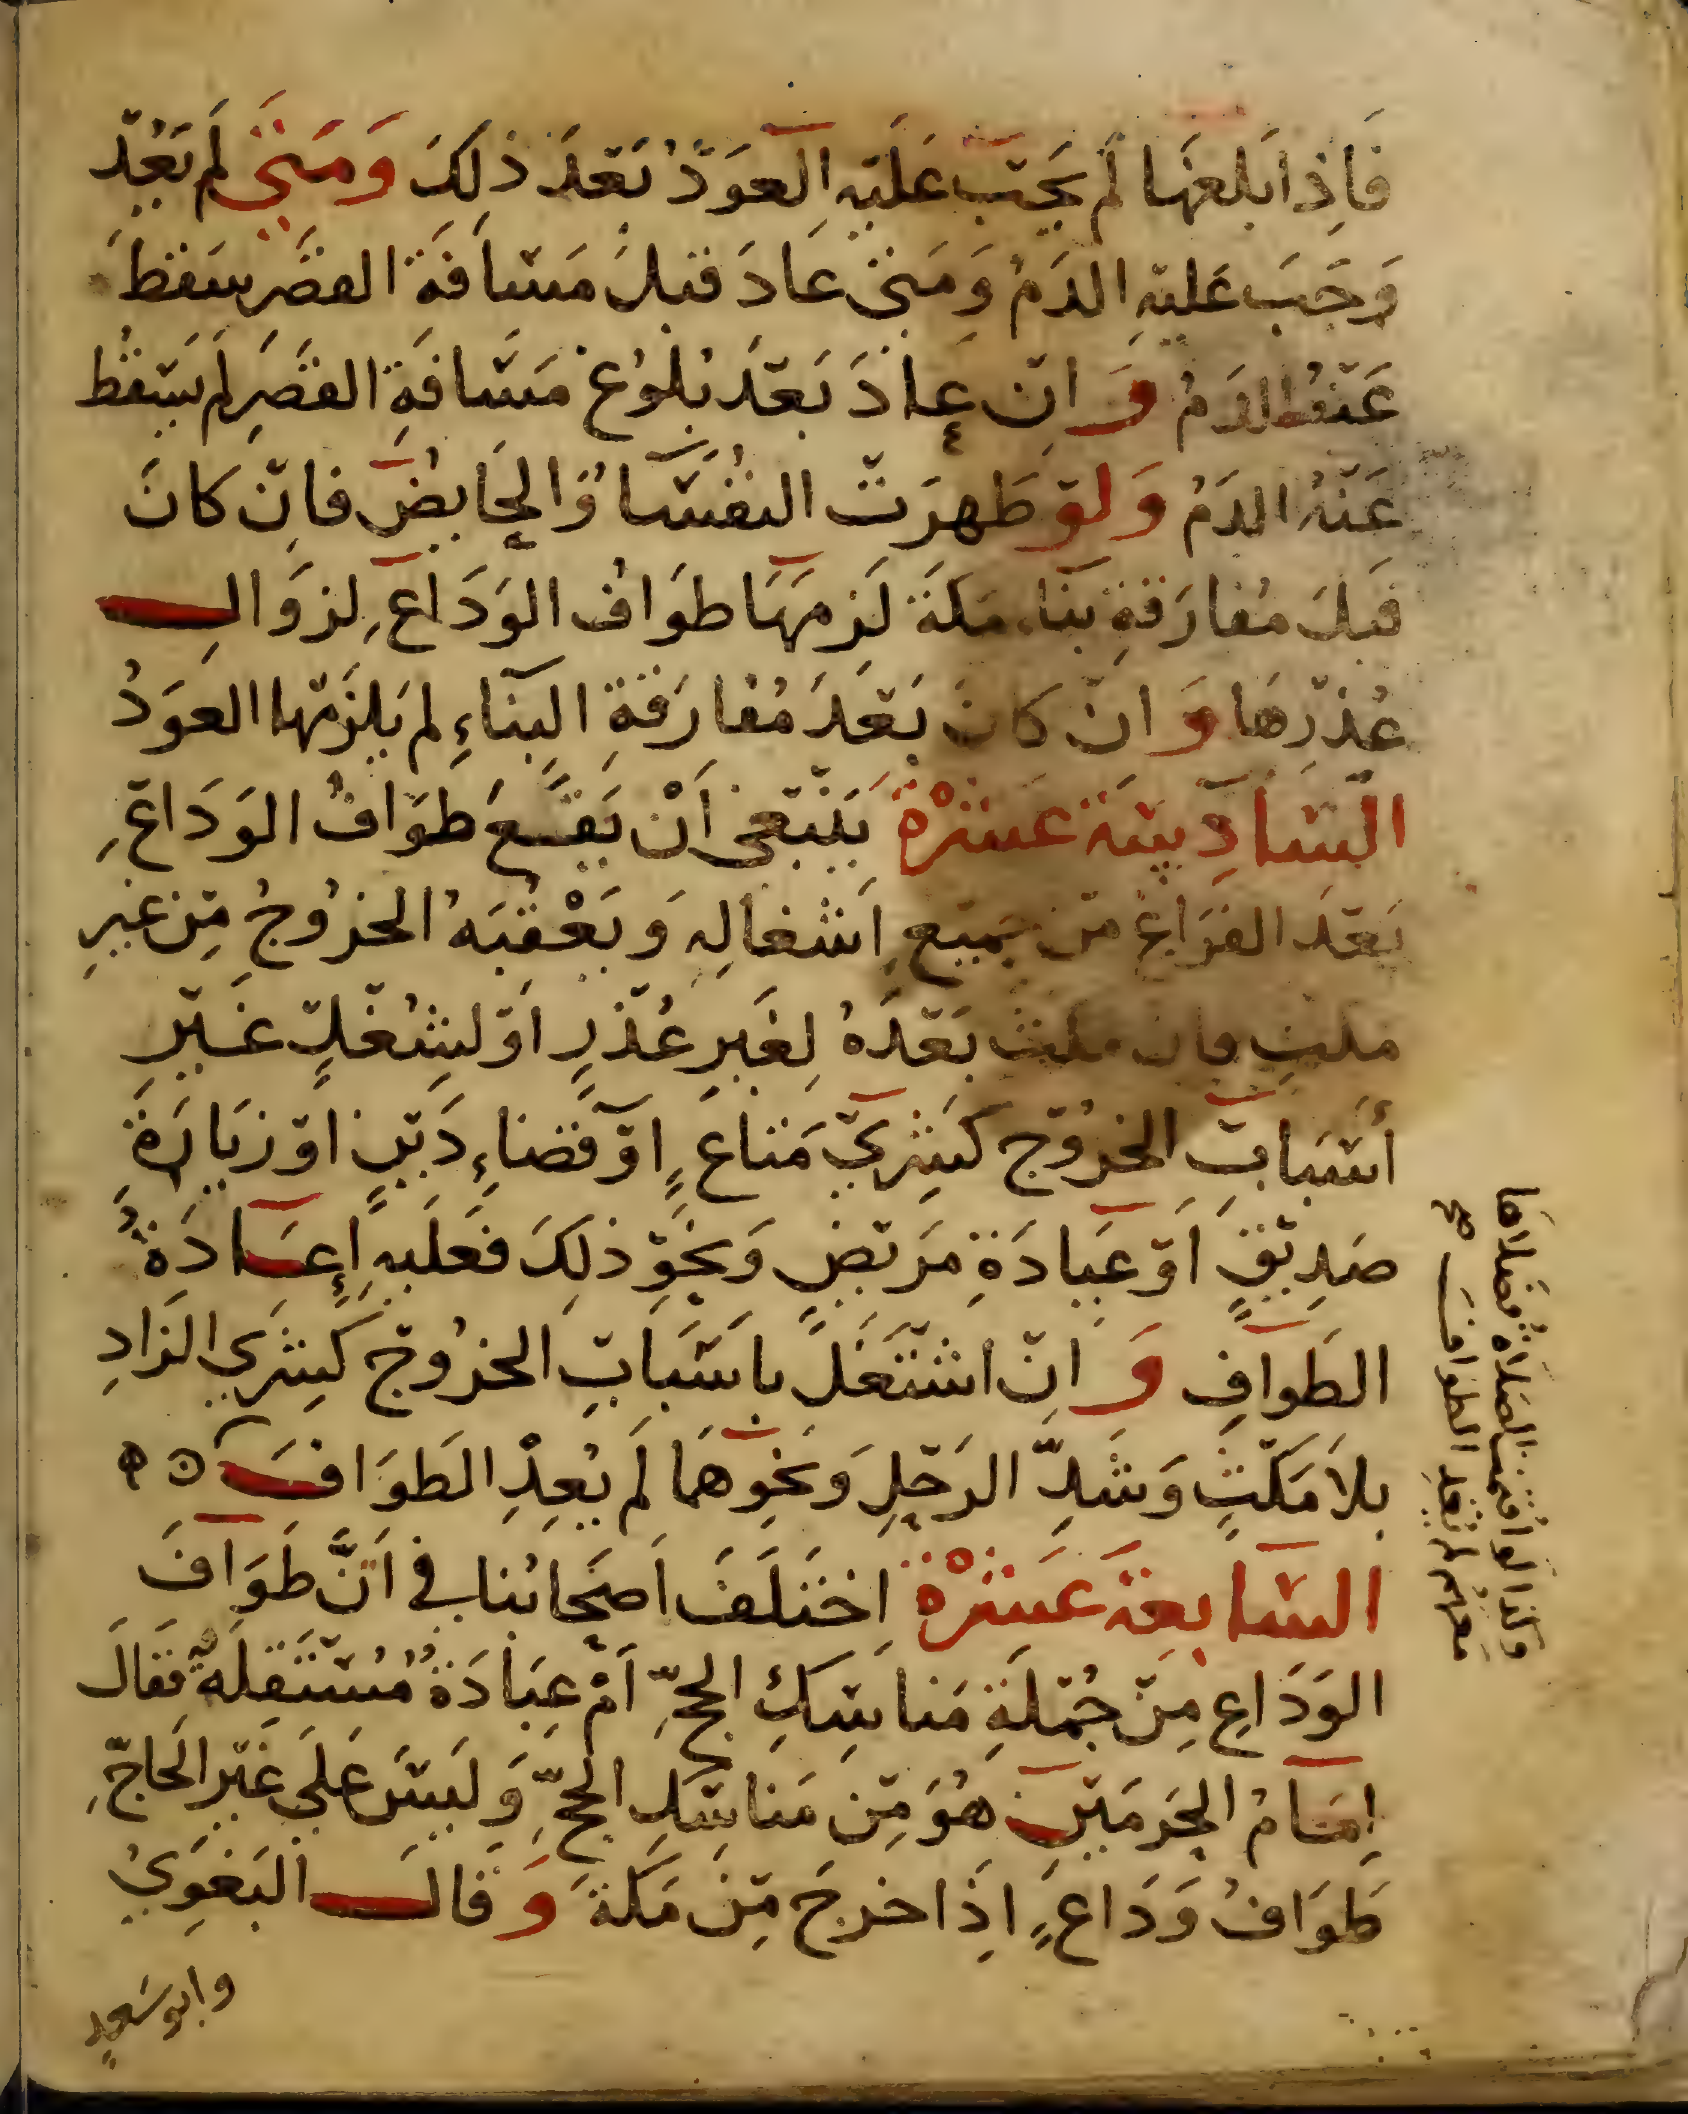 فَإِذا بَلَغَهَا لَم يَجِبْ عَلَيْهِ الْعَوْدُ بَعْدَ ذلِكَ وَمَتَى لَم يَعُدْ
وَجَبَ عَلَيْهِ الدَمُ وَمَتى عَادَ قَبْلَ مَسَافَةِ القَصْرِ سَقَطَ
عَنْهُ الدَمُ وَاِنْ عَادَ بَعْدَ بُلُوغِ مَسَافَةِ القَصْرِ لَم يَسْقُطْ
عَنْهُ الدَمُ وَلَوْ طَهرَتْ النُفَسَآءُ وَالحَايِضُ فَاِنْ كانَ
قَبلَ مُفارَقَةِ بنَآءِ مَكةَ لَزِمَهَا طَوَافُ الوَدَاعِ لِزوَالِ
عُذْرِهَا وَاِنْ كانَ بَعْدَ مُفارَقَةِ البِنَآءِ لم يَلْزَمْها العَوْدُ
السَّادِسَةَ عَشْرَةَ يَنْبَغي اَنْ يَقَعَ طَوَافُ الوَدَاعِ
بَعْدَ الفَرَاغِ مِنْ جَميْعِ اَشغَالِهِ وَيَعْقُبَهُ الخرُوجُ مِنْ غيرِ
مكْثٍ فإن مكث بَعْدَهُ لِغَيرِ عُذْرٍ اَوْ لِشُغْلٍ غَيْرِ
أسْبَابِ الخرُوْجِ كَشِرَيْ مَتاعٍ اَوْ قَضآءِ دَيْنٍ اوْ زِيَارَةِ
صَدِيْقٍ اَوْ عِيَادَةِ مرَيْضٍ وَنَحْوِ ذلِكَ فَعَلَيهِ إِعَادَةُ
الطَوَافِ وَاِنْ اشْتَغَلَ بِاَسْبَابِ الخرُوْجِ كَشِرَي الزَادِ
بلاَ مَكْثٍ وَشَدِّ الرَحْلِ وَنَحْوِهمَا لَم يُعِدْ الطَوَافَ
السَّابِعَة عَشرْةَ اِختَلَفَ اَصحَابُنا في اَنَّ طَوَافَ
الوَدَاعِ مِنْ جُمْلَةِ مَناسِكِ الحجِّ اَمْ عِبَادَةٌ مُسْتَقِلَةٌ فَقَالَ
اِمَامُ الحرَمَيْنِ هُوَ مِنْ مَنَاسِكِ الحجِّ وَلَيسَ عَلَى غَيْرِ الحَاجِّ
طَوَافُ وَدَاعٍ اِذَا خرجَ مِنْ مَكةَ وَقَالَ البَغَوِيُ
وابو سَعيدٍ
وكذا لو اقيمت الصلاة فصلاها
معهم لم يعد الطواف صح